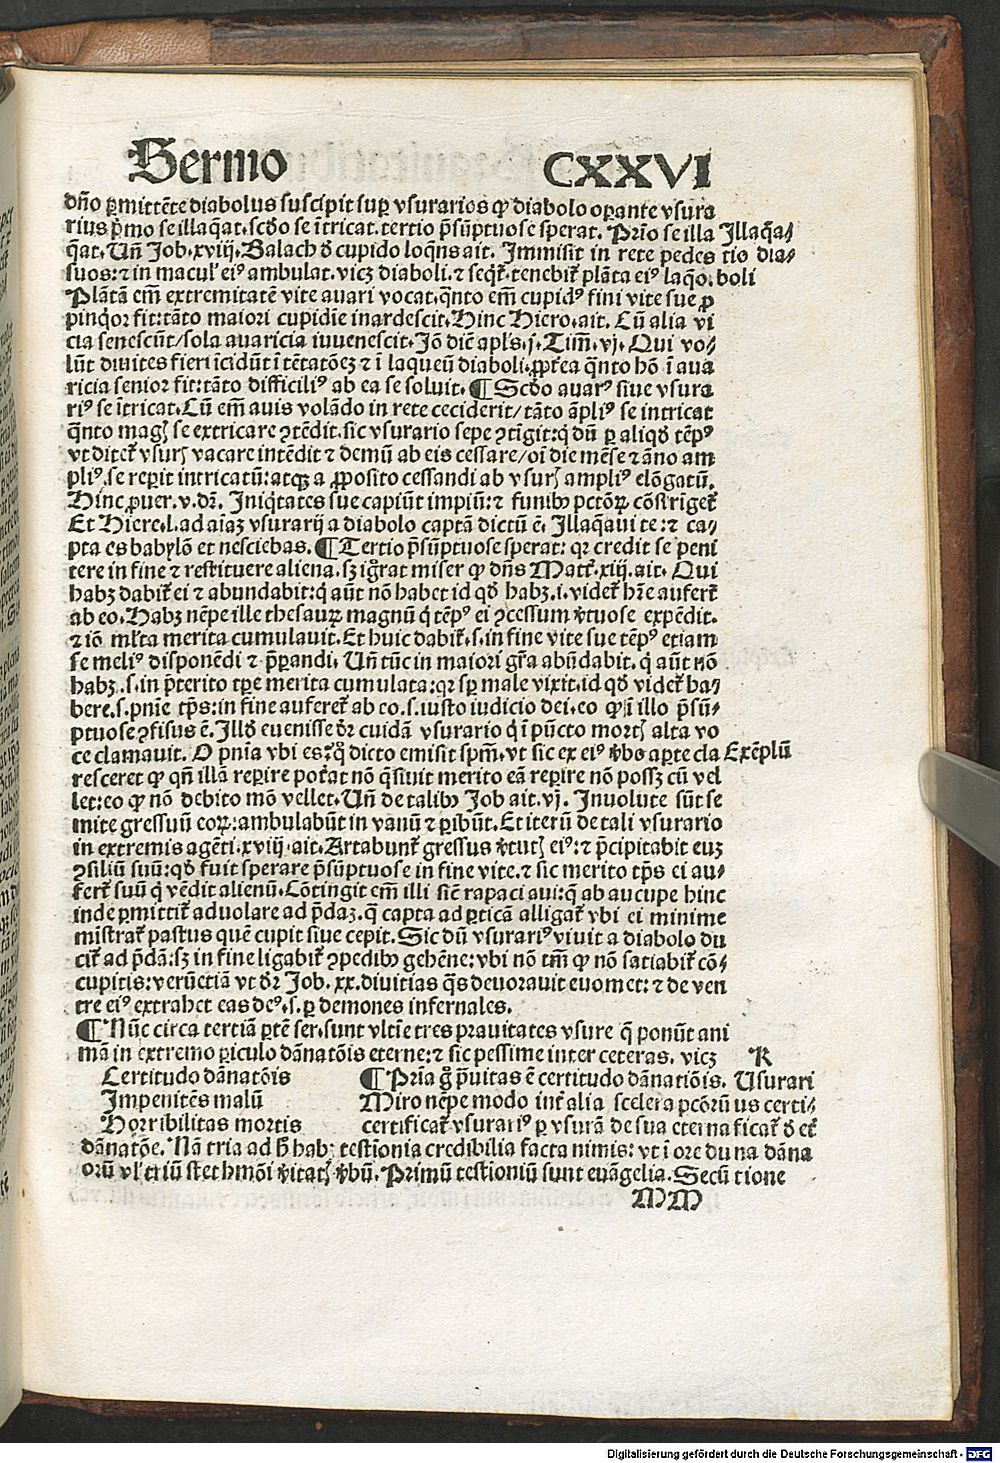 Sermo CXXVI
dño ꝑmittẽte diabolus suscipit suꝑ vsurarios ꝙ diabolo oꝑante vsura
rius p̃mo se illaq̃at. scdo se ĩtricat. tertio p̃sũptuose sperat. Prĩo se illa Illaq̃a⸗
q̃at. Uñ Job. xviij. Balach ð cupido loq̃ns ait. Immisit in rete pedes tio dia⸗
suos: ⁊ in macul' ei⁹ ambulat. vicꝫ diaboli. ⁊ seq̃t̃. tenebit̃ plãta ei⁹ laq̃o. boli
Plãtã em̃ extremitatẽ vite auari vocat. q̃nto em̃ cupid⁹ fini vite sue ꝓ
pinq̃or fit: tãto maiori cupidĩe inardescit. Hinc Hiero. ait. Cũ alia vi
cia senescũt/ sola auaricia iuuenescit. Jõ dic̃ apl's. j. Tim̃. vj. Qui vo⸗
lũt diuites fieri ĩcidũt ĩ tẽtatõeꝫ ⁊ ĩ laqueũ diaboli. ꝓpt̃ea q̃nto hõ ĩ aua
ricia senior fit: tãto difficili⁹ ab ea se soluit. ¶ Scdo auar⁹ siue vsura
ri⁹ se ĩtricat. Cũ em̃ auis volãdo in rete ceciderit/ tãto ãpli⁹ se intricat
q̃nto magꝭ se extricare ꝯtẽdit. sic vsurario sepe ꝯtĩgit: q̃ dũ ꝑ aliqð tẽp⁹
vt ditet̃ vsurꝭ vacare intẽdit ⁊ demũ ab eis cessare/ oĩ die mẽse ⁊ ãno am
pli⁹. se reꝑit intricatũ: atqꝫ a ꝓposito cessandi ab vsurꝭ ampli⁹ elõgatũ.
Hinc ꝓuer. v. dr̃. Iniq̃tates sue capiũt impiũ: ⁊ funibꝫ pctõꝝ cõstrĩget̃
Et Hiere. l. ad aĩaꝫ vsurarij a diabolo captã dictũ ẽ. Illaq̃aui te: ⁊ ca⸗
pta es babylõ et nesciebas. ¶ Tertio p̃sũptuose sperat: qꝛ credit se peni
tere in fine ⁊ restituere aliena. sꝫ ig̃rat miser ꝙ dñs Matt̃. xiij. ait. Qui
habꝫ dabit̃ ei ⁊ abundabit: q̃ aũt nõ habet id qð habꝫ. i. videt̃ hr̃e auferet̃
ab eo. Habꝫ nẽpe ille thesauꝝ magnũ q̃ tẽp⁹ ei ꝯcessum ṽtuose expẽdit.
⁊ iõ ml'ta merita cumulauit. Et huic dabit̃. s. in fine vite sue tẽp⁹ etiam
se meli⁹ disponẽdi ⁊ p̃ꝑandi. Uñ tũc in maiori gr̃a abũdabit. q̃ aũt nõ
habꝫ. s. in p̃terito tꝑe merita cumulata: qꝛ sꝑ male vixit. id qð videt̃ ha⸗
bere. s. pñie tp̃s: in fine auferet̃ ab eo. s. iusto iudicio dei. eo ꝙ ĩ illo p̃sũ⸗
ptuose ꝯfisus ẽ. Illð euenisse dr̃ cuidã vsurario q̃ ĩ pũcto mortꝭ alta vo
ce clamauit. O pñia vbi es? q̃ dicto emisit spm̃. vt sic ex ei⁹ ṽbo aꝑte cla Exẽplũ
resceret ꝙ qñ illã reꝑire pot̃at nõ q̃siuit merito eã reꝑire nõ possꝫ cũ vel
let: eo ꝙ nõ debito mõ vellet. Uñ de talibꝫ Job ait. vj. Inuolute sũt se
mite gressuũ eoꝝ: ambulabũt in vanũ ⁊ ꝑibũt. Et iterũ de tali vsurario
in extremis agẽti. xviij. ait. Artabunt̃ gressus ṽtutꝭ ei⁹: ⁊ p̃cipitabit euꝫ
ꝯsiliũ suũ: qð fuit sperare p̃sũptuose in fine vite. ⁊ sic merito tp̃s ei au⸗
fert̃ suũ q̃ vẽdit alienũ. Cõtingit em̃ illi sic̃ rapaci aui: q̃ ab aucupe hinc
inde ꝑmittit̃ aduolare ad p̃daꝫ. q̃ capta ad ꝑticã alligat̃ vbi ei minime
mistrat̃ pastus quẽ cupit siue cepit. Sic dũ vsurari⁹ viuit a diabolo du
cit̃ ad p̃dã: sꝫ in fine ligabit̃ ꝯpedibꝫ gehẽne: vbi nõ tm̃ ꝙ nõ satiabit̃ cõ⸗
cupitis: verũetiã vt dr̃ Job. xx. diuitias q̃s deuorauit euomet: ⁊ de ven
tre ei⁹ extrahet eas de⁹. s. ꝑ demones infernales.
¶ Nũc circa tertiã ꝑtẽ ser. sunt vltĩe tres prauitates vsure q̃ ponũt ani
mã in extremo ꝑiculo dãnatõis eterne: ⁊ sic pessime inter ceteras. vicꝫ K
Certitudo dãnatõis
Impenitẽs malũ
Horribilitas mortis
¶ Prĩa g̃ p̃uitas ẽ certitudo dãnatiõis. Usurari
Miro nẽpe modo int̃ alia scelera pcõrũ us certi⸗
certificat̃ vsurari⁹ ꝑ vsurã de sua eterna ficat̃ ð et̃
dãnatõe. Nã tria ad h̃ habꝫ testĩonia credibilia facta nimis: vt ĩ ore du na dãna
orũ vl' triũ stet hmõi ṽitatꝭ ṽbũ. Primũ testioniũ sunt euãgelia. Secũ tione
MM
Digitalisierung gefördert durch die Deutsche Forschungsgemeinschaft - DFG